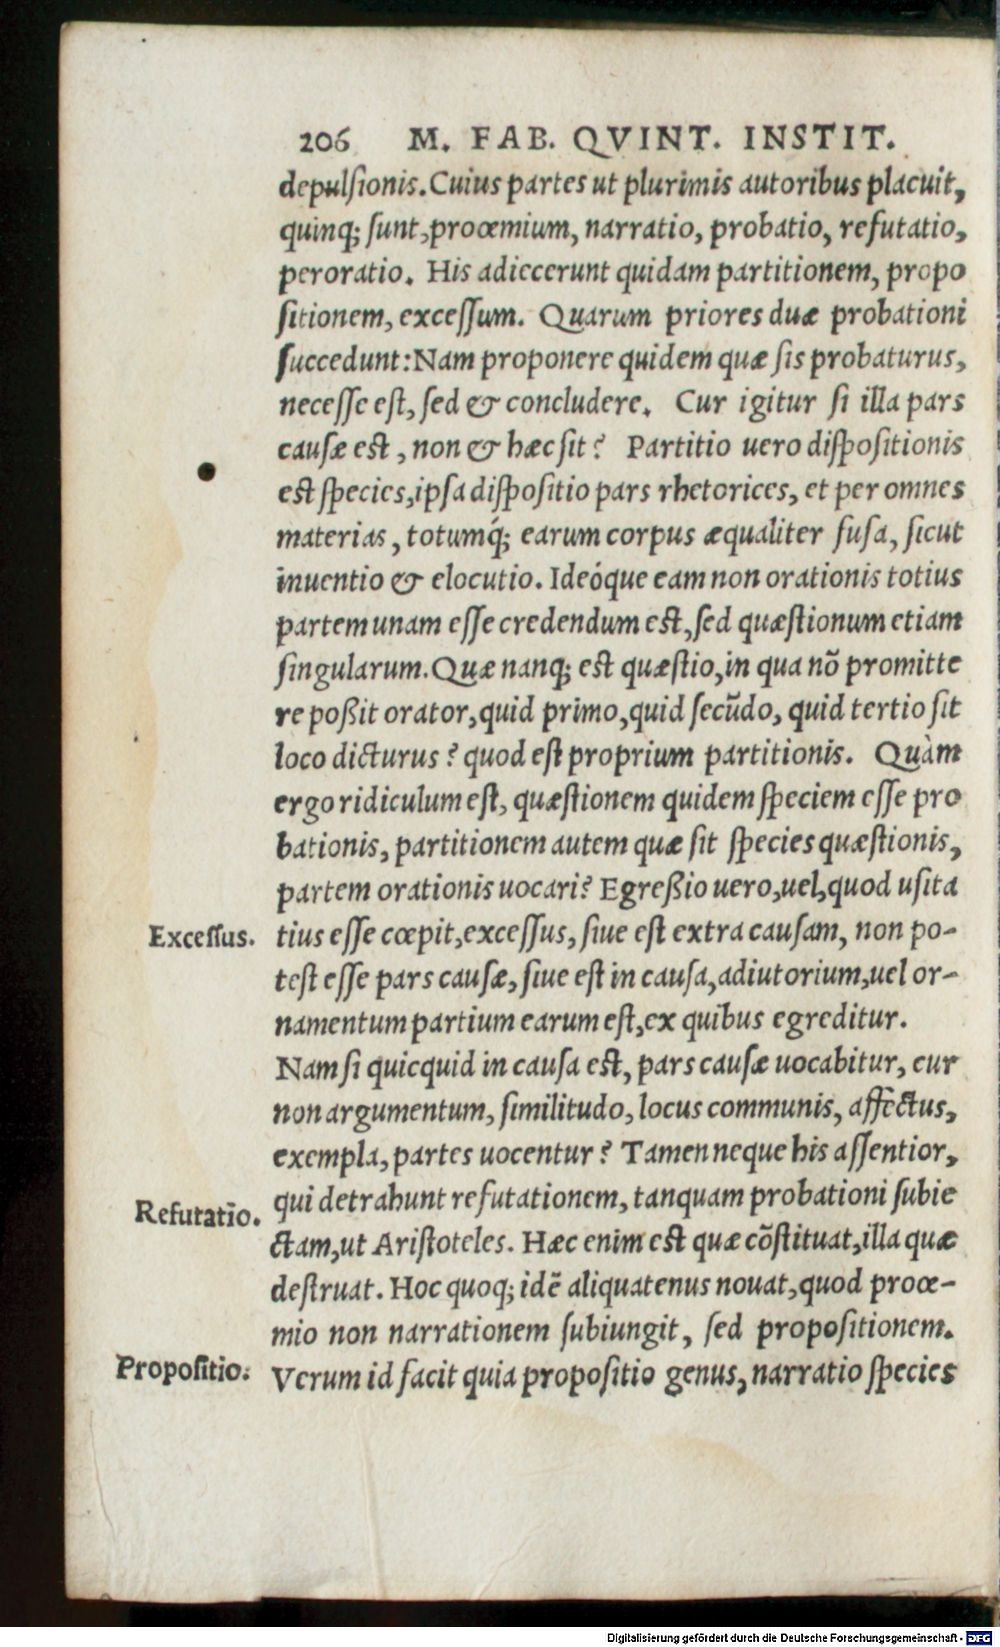 206 M. FAB. QVINT. INSTIT.
depulſionis. Cuius partes ut plurimis autoribus placuit,
quinq; ſunt, proœmium, narratio, probatio, refutatio,
peroratio. His adiecerunt quidam partitionem, propo
ſitionem, exceſſum. Quarum priores duæ probationi
ſuccedunt: Nam proponere quidem quæ ſis probaturus,
neceſſe eſt, ſed & concludere. Cur igitur ſi illa pars
cauſæ eſt, non & hæc ſit? Partitio uero diſpoſitionis
eſt ſpecies, ipſa diſpoſitio pars rhetorices, et per omnes
materias, totumq́; earum corpus æqualiter fuſa, ſicut
inuentio & elocutio. Ideóque eam non orationis totius
partem unam eſſe credendum eſt, ſed quæſtionum etiam
ſingularum. Quæ nanq; eſt quæſtio, in qua nõ promitte
re poßit orator, quid primo, quid ſecũdo, quid tertio ſit
loco dicturus? quod eſt proprium partitionis. Quàm
ergo ridiculum eſt, quæſtionem quidem ſpeciem eſſe pro
bationis, partitionem autem quæ ſit ſpecies quæſtionis,
partem orationis uocari? Egreßio uero, uel, quod uſita
Exceſſus. tius eſſe cœpit, exceſſus, ſiue eſt extra cauſam, non po-
teſt eſſe pars cauſæ, ſiue eſt in cauſa, adiutorium, uel or-
namentum partium earum eſt, ex quibus egreditur.
Nam ſi quicquid in cauſa eſt, pars cauſæ uocabitur, cur
non argumentum, ſimilitudo, locus communis, affectus,
exempla, partes uocentur? Tamen neque his aſſentior,
Refutatĩo. qui detrahunt refutationem, tanquam probationi ſubie
ctam, ut Ariſtoteles. Hæc enim eſt quæ cõſtituat, illa quæ
deſtruat. Hoc quoq; idẽ aliquatenus nouat, quod proœ-
mio non narrationem ſubiungit, ſed propoſitionem.
Propoſitio. Verum id facit quia propoſitio genus, narratio ſpecies
Digitalisierung gefördert durch die Deutsche Forschungsgemeinschaft - DFG